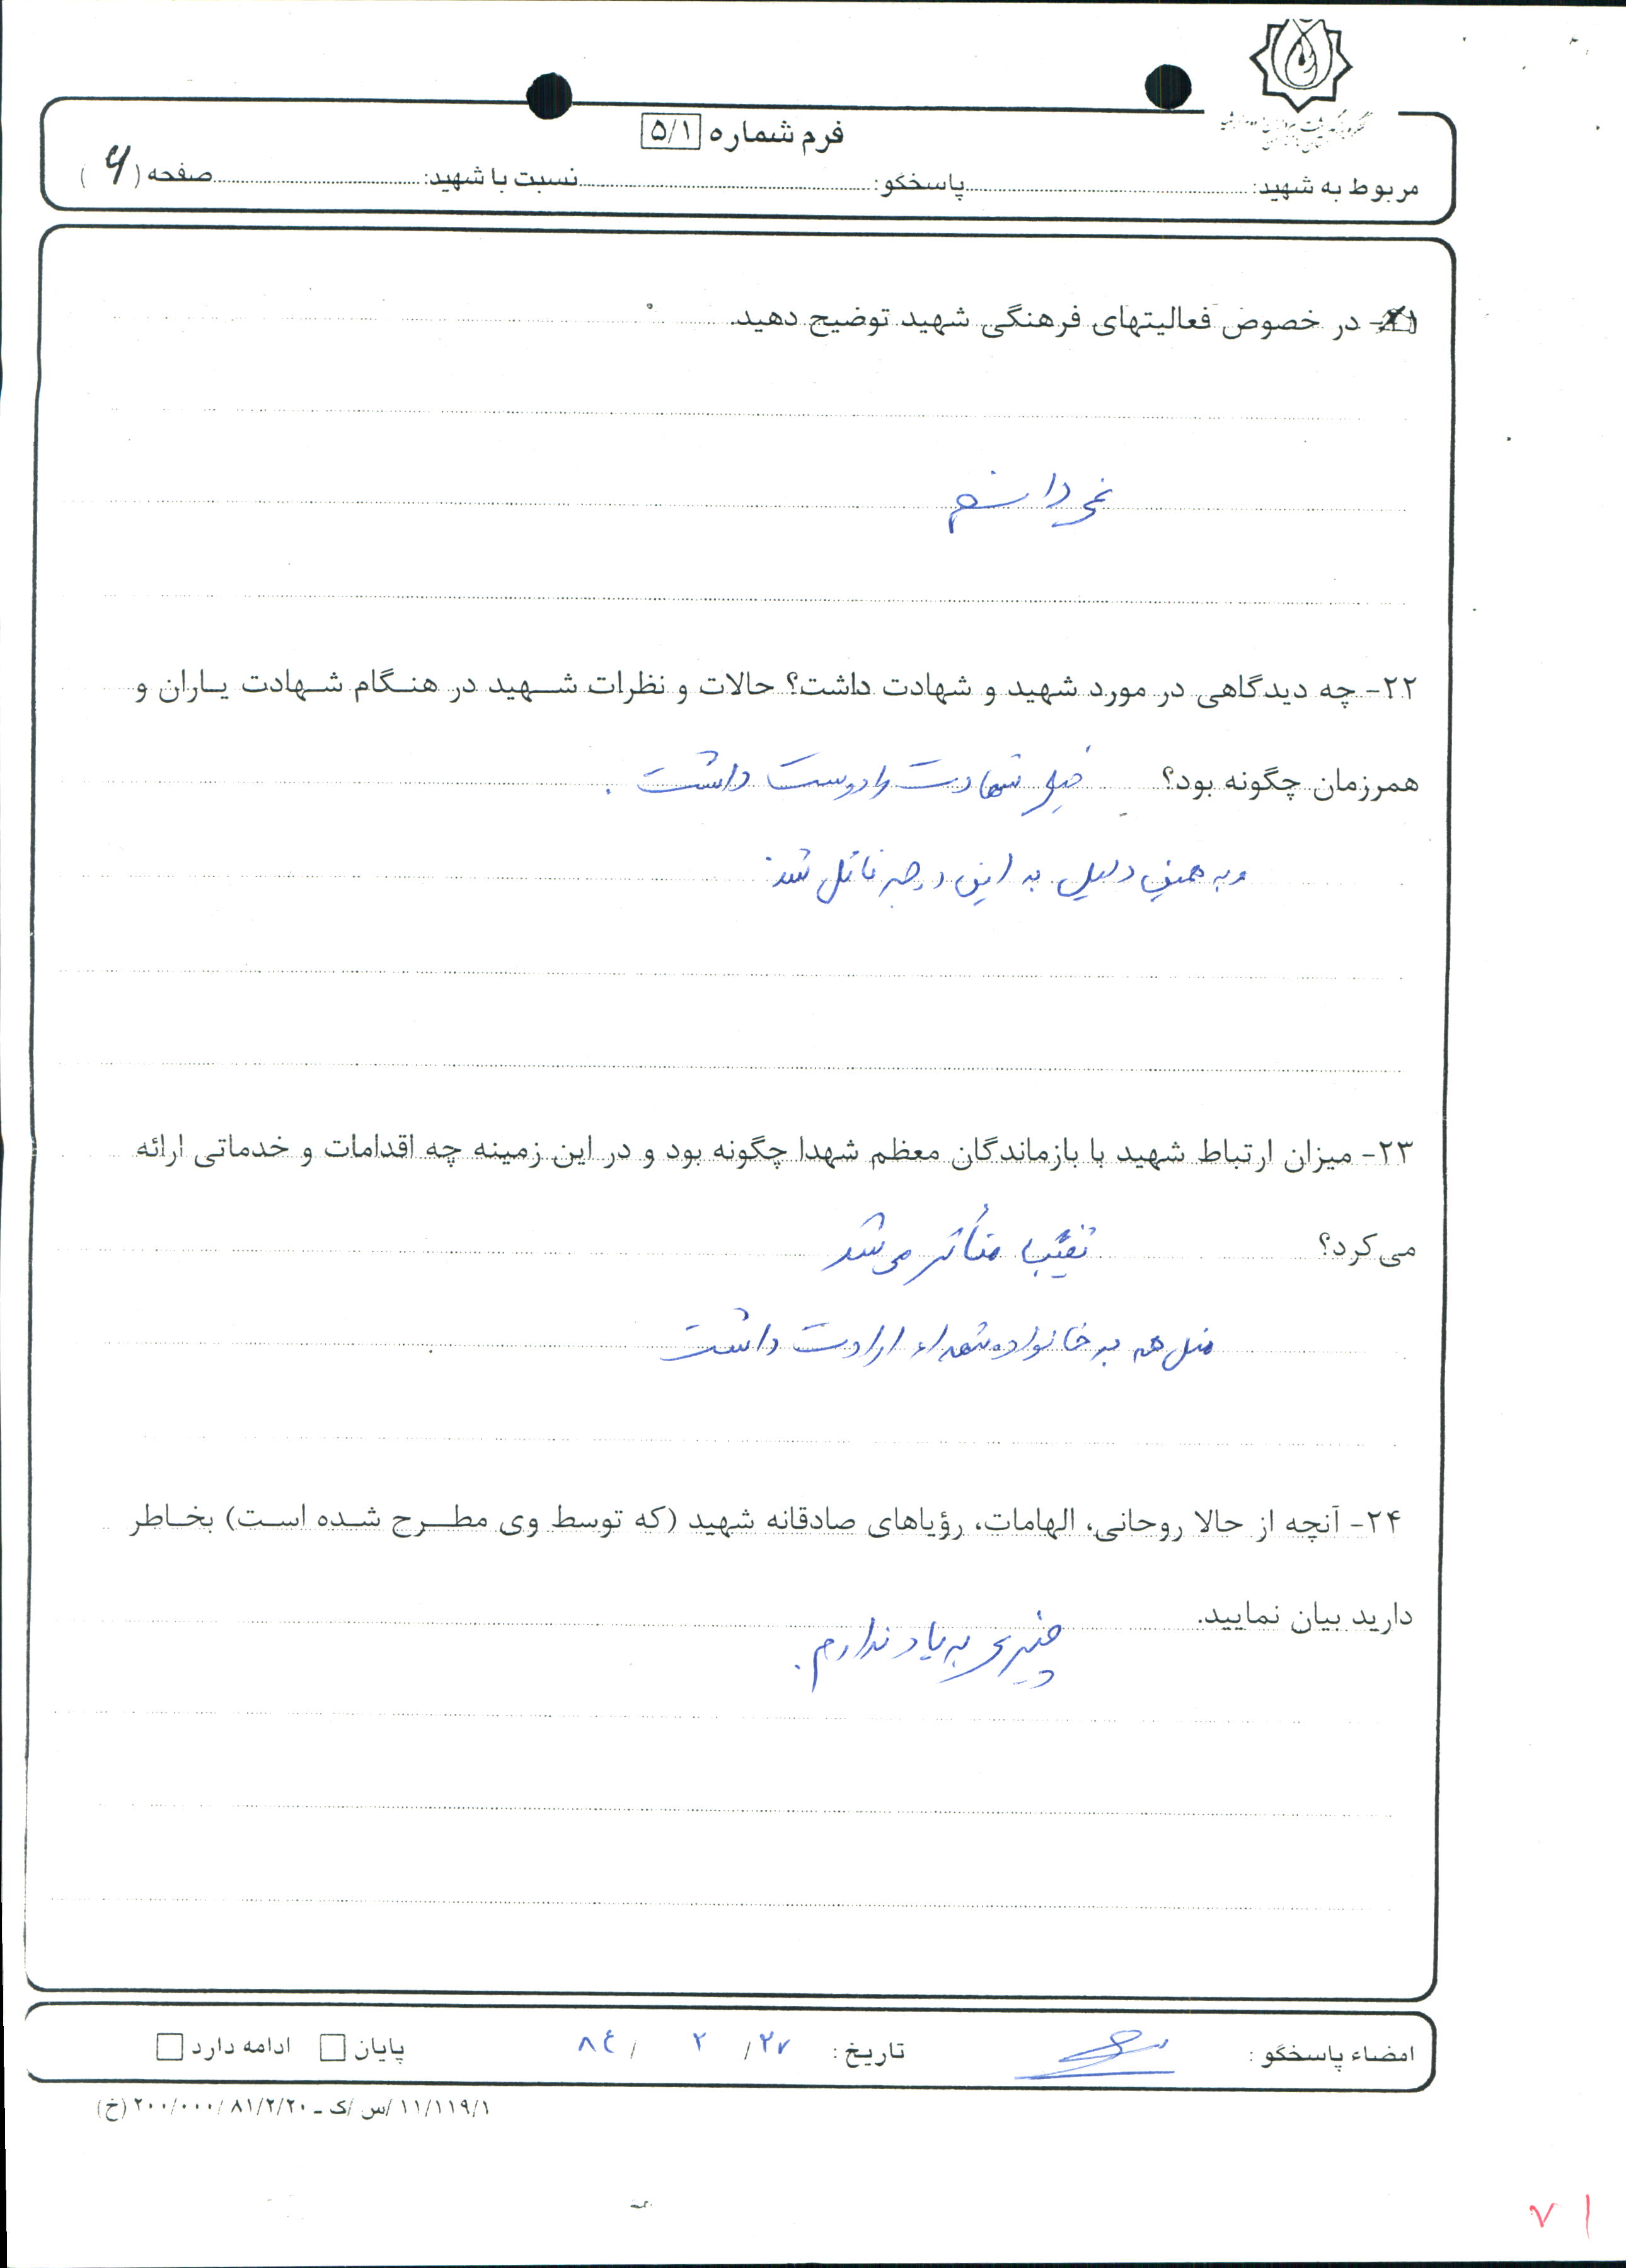 فرم شماره ۵/۱
مربوط به شهید: پاسخگو: نسبت با شهید: صفحه (۶)
۲۱- در خصوص فعالیتهای فرهنگی شهید توضیح دهید.
نمی دانم
۲۲- چه دیدگاهی در مورد شهید و شهادت داشت؟ حالات و نظرات شهید در هنگام شهادت یاران و
همرزمان چگونه بود؟ خیلی شهادت را دوست داشت.
و به همین دلیل به این درجه نائل شد.
۲۳- میزان ارتباط شهید با بازماندگان معظم شهدا چگونه بود و در این زمینه چه اقدامات و خدماتی ارائه
می کرد؟ تقریبا متأثر می شد
مثل همه به خانواده شهداء ارادت داشت
۲۴- آنچه از حالا روحانی، الهامات، رؤیاهای صادقانه شهید (که توسط وی مطرح شده است) بخاطر
دارید بیان نمایید.
چیزی به یاد ندارم.
امضاء پاسخگو: تاریخ: ۲۷/ ۲ / ۸٤ پایان ادامه دارد
۱۱/۱۱۹/۱ /س /ک ـ ۸۱/۲/۲۰ /۲۰۰/۰۰۰ (خ)
۷۱